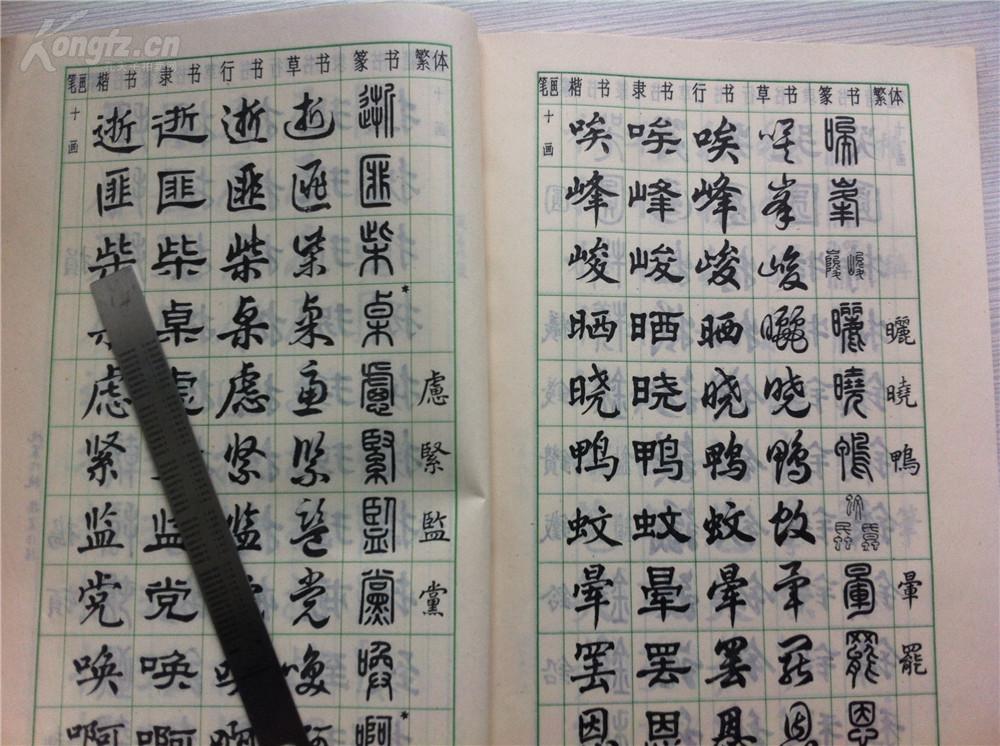 Kongfz.cn
笔画 楷书 隶书 行书 草书 篆书 繁体
十画 逝 逝 逝 逝 逝
匪 匪 匪 匪 匪
柴 柴 柴 柴 柴
卓 桌 桌 桌*
虑 虑 虑 虑 慮 慮
紧 紧 紧 緊 緊
监 监 监 监 監 監
党 党 党 黨 黨
唤 唤 唤 唤 喚
啊 啊 啊 啊 啊*
笔画 楷书 隶书 行书 草书 篆书 繁体
十画 唉 唉 唉 唉
峰 峰 峰 峯 峯
峻 峻 峻 峻 峻
晒 晒 晒 曬 曬 曬
晓 晓 晓 晓 曉 曉
鸭 鸭 鸭 鸭 鴨
蚊 蚊 蚊 蚊
晕 晕 晕 晕 暈 暈
罢 罢 罢 罢 罷 罷
恩 恩 恩 恩 恩